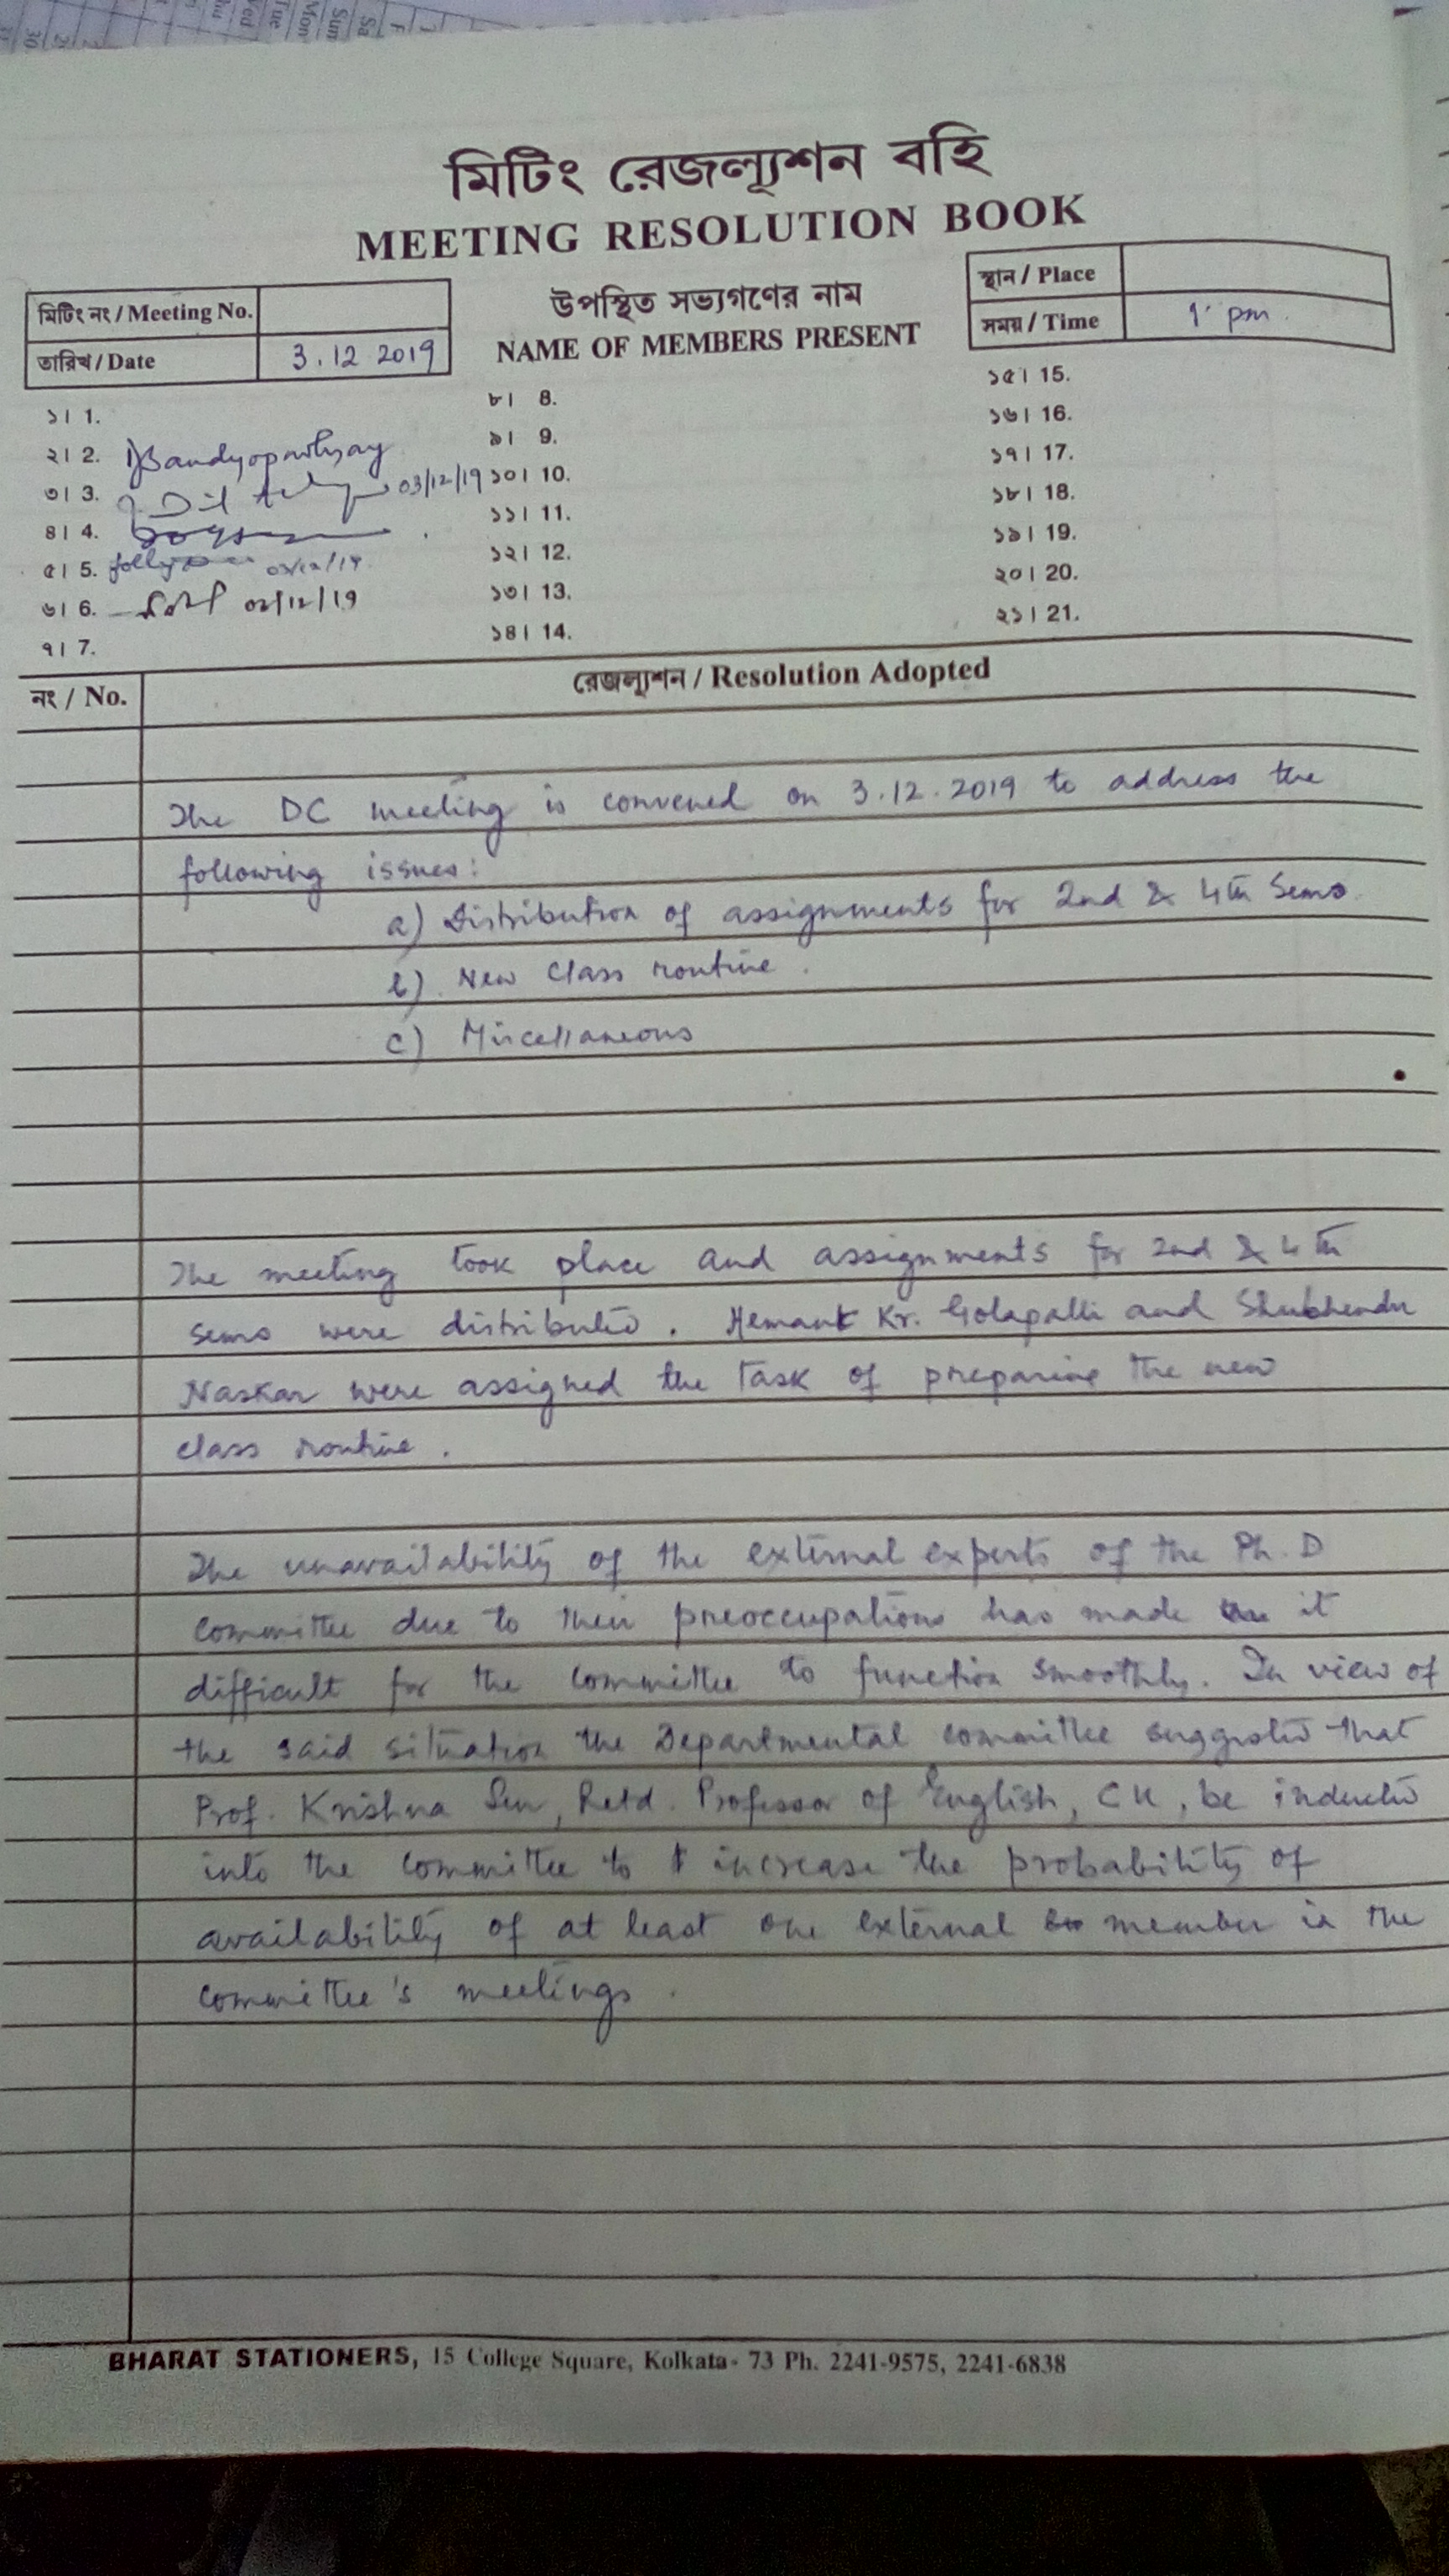 মিটিং রেজল্যুশন বহি
MEETING RESOLUTION BOOK
মিটিং নং / Meeting No.
তারিখ / Date 3.12 2019
উপস্থিত সভ্যগণের নাম
NAME OF MEMBERS PRESENT
স্থান / Place
সময় / Time 1 pm
১। 1.
২। 2. Bandyopadhyay
৩। 3. 03/12/19
৪। 4.
৫। 5. 03/12/19
৬। 6. 02/12/19
৭। 7.
৮। 8.
৯। 9.
১০। 10.
১১। 11.
১২। 12.
১৩। 13.
১৪। 14.
১৫। 15.
১৬। 16.
১৭। 17.
১৮। 18.
১৯। 19.
২০। 20.
২১। 21.
নং / No.
রেজল্যুশন / Resolution Adopted
The DC meeting is convened on 3.12.2019 to address the
following issues:
a) Distribution of assignments for 2nd & 4th Sems.
b) New Class routine.
c) Miscellaneous
The meeting took place and assignments for 2nd & 4th
sems were distributed. Hemant Kr. Golapalli and Shubhendu
Naskar were assigned the task of preparing the new
class routine.
The unavailability of the external experts of the Ph.D
committee due to their preoccupations has made it
difficult for the committee to function smoothly. In view of
the said situation the Departmental committee suggested that
Prof. Krishna Sen, Retd. Professor of English, CU, be inducted
into the committee to increase the probability of
availability of at least one external member in the
committee's meetings.
BHARAT STATIONERS, 15 College Square, Kolkata- 73 Ph. 2241-9575, 2241-6838